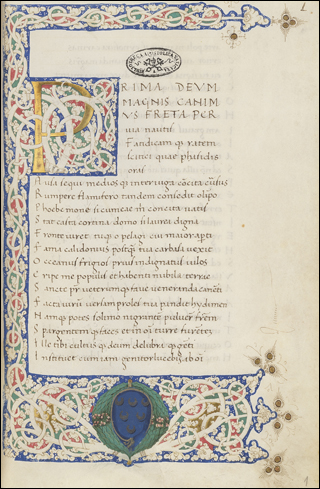 PRIMA DEVM
MAGNIS CANIM
VS FRETA PER
via nautis
Fatidicamq; ratem
scitici quae phasidis
oras
Ausa sequi mediosq; inter iuga cõcita cursus
Rumpere flamifero tandem consedit olipo
Phoebe mone si cumeae m conscia vatis
Stat casta cortina domo si laurea digna
Fronte viret tuq; o pelagi cui maior apti
Fama calidonius postq̃ tua carbasa vexit
Occeanus frigios prius indignatus iulos
Eripe me populis et habenti nubila terrae
Sancte pr̃ veterumq; fave veneranda canenti
Facta virũ versam proles tua pandit hydumen
Namq; potest solimo nigrantẽ pulvere frẽm
Spargentemq; faces et in oĩ turre furentẽ
Ille tibi cultus q; deum delubraq; genti
Instituet cum iam genitor lucebis ab oĩ